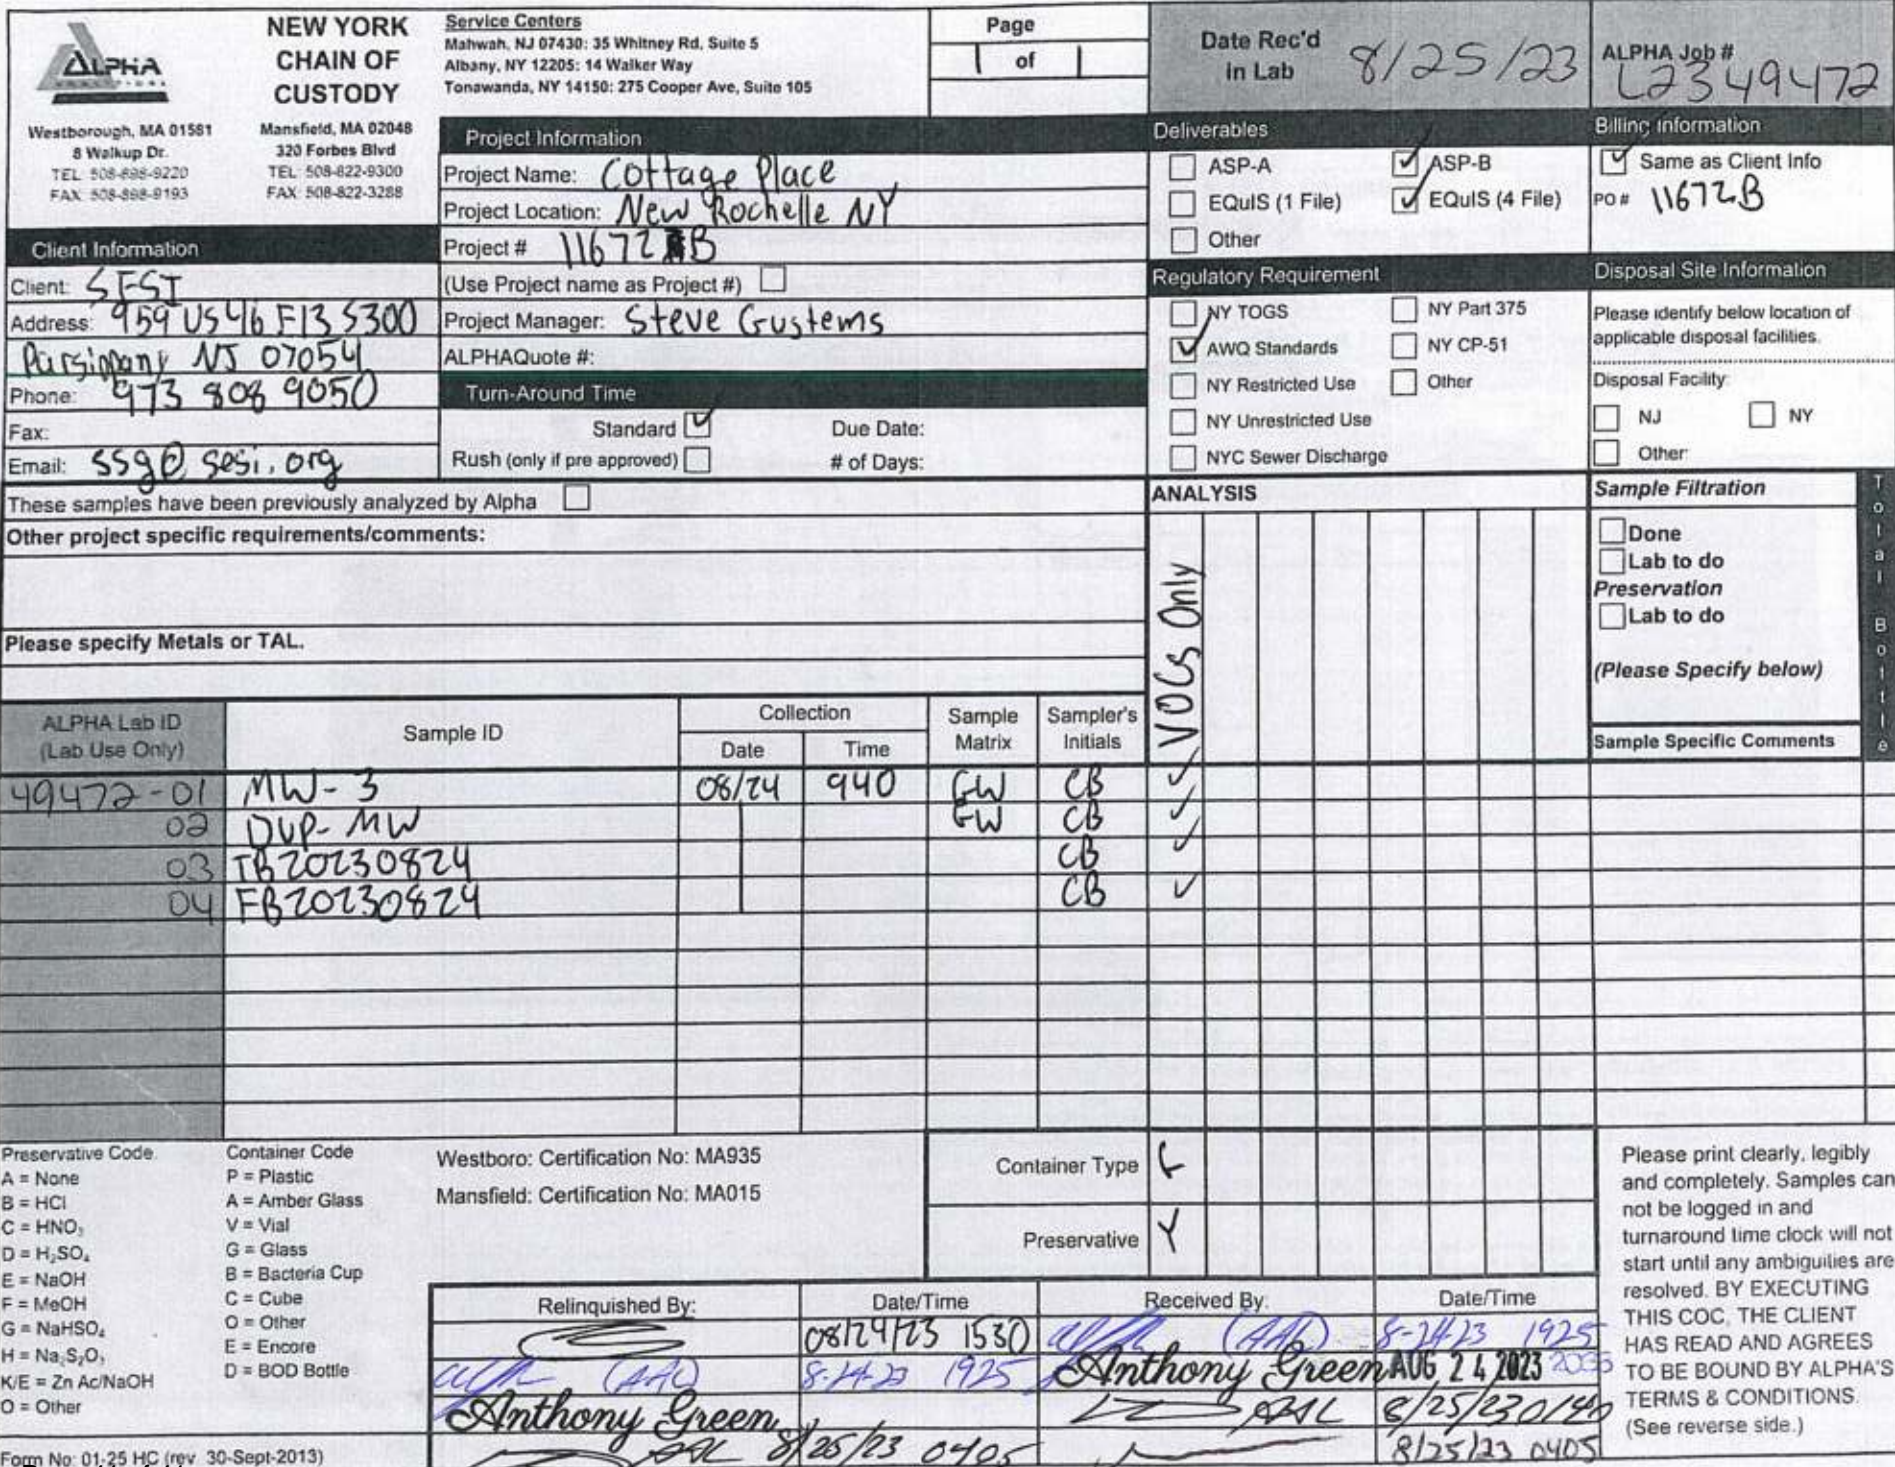 ALPHA
NEW YORK
CHAIN OF
CUSTODY
Westborough, MA 01581
8 Walkup Dr.
TEL: 508-898-9220
FAX: 508-898-9193
Mansfield, MA 02048
320 Forbes Blvd
TEL: 508-822-9300
FAX: 508-822-3288
Service Centers
Mahwah, NJ 07430: 35 Whitney Rd, Suite 5
Albany, NY 12205: 14 Walker Way
Tonawanda, NY 14150: 275 Cooper Ave, Suite 105
Page
1 of 1
Date Rec'd
in Lab
8/25/23
ALPHA Job #
L2349472
Project Information
Project Name: Cottage Place
Project Location: New Rochelle NY
Project # 11672 B
(Use Project name as Project #)
Project Manager: Steve Gustems
ALPHAQuote #:
Turn-Around Time
Standard
Due Date:
Rush (only if pre approved)
# of Days:
Client Information
Client: SESI
Address: 959 US 46 Fl3 S300
Parsippany NJ 07054
Phone: 973 808 9050
Fax:
Email: ssg@sesi.org
Deliverables
ASP-A
ASP-B
EQuIS (1 File)
EQuIS (4 File)
Other
Billing Information
Same as Client Info
PO # 11672B
Regulatory Requirement
NY TOGS
NY Part 375
AWQ Standards
NY CP-51
NY Restricted Use
Other
NY Unrestricted Use
NYC Sewer Discharge
Disposal Site Information
Please identify below location of
applicable disposal facilities.
Disposal Facility:
NJ
NY
Other:
These samples have been previously analyzed by Alpha
Other project specific requirements/comments:
Please specify Metals or TAL.
ANALYSIS
VOCs Only
Sample Filtration
Done
Lab to do
Preservation
Lab to do
(Please Specify below)
Total Bottle
Sample Specific Comments
ALPHA Lab ID
(Lab Use Only)
Sample ID
Collection
Date
Time
Sample
Matrix
Sampler's
Initials
49472-01 MW-3 08/24 940 GW CB ✓
02 DUP-MW GW CB ✓
03 TB20230824 CB ✓
04 FB20230824 CB ✓
Preservative Code:
A = None
B = HCl
C = HNO₃
D = H₂SO₄
E = NaOH
F = MeOH
G = NaHSO₄
H = Na₂S₂O₃
K/E = Zn Ac/NaOH
O = Other
Container Code
P = Plastic
A = Amber Glass
V = Vial
G = Glass
B = Bacteria Cup
C = Cube
O = Other
E = Encore
D = BOD Bottle
Westboro: Certification No: MA935
Mansfield: Certification No: MA015
Container Type
Preservative Y
Relinquished By:
Date/Time
Received By:
Date/Time
08/24/23 1530
(AAL)
8-24-23 1925
(AAL)
8-24-23 1925
Anthony Green
AUG 24 2023
Anthony Green
AAL
8/25/23 0140
AAL
8/25/23 0405
8/25/23 0405
Please print clearly, legibly
and completely. Samples can
not be logged in and
turnaround time clock will not
start until any ambiguities are
resolved. BY EXECUTING
THIS COC, THE CLIENT
HAS READ AND AGREES
TO BE BOUND BY ALPHA'S
TERMS & CONDITIONS.
(See reverse side.)
Form No: 01-25 HC (rev. 30-Sept-2013)